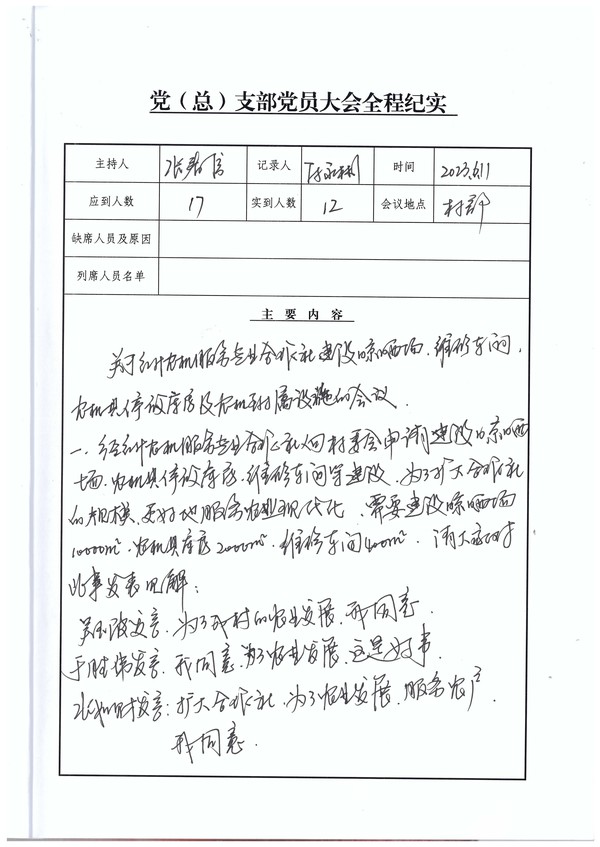 党（总）支部党员大会全程纪实
主持人 张 信 记录人 时间 2023.6.11
应到人数 17 实到人数 12 会议地点 村部
缺席人员及原因
列席人员名单
主要内容
关于 农机服务专业合作社建设晾晒场、维修车间、
农机具停放库房及农机附属设施的会议
一、经 农机服务专业合作社向村委会申请建设晾晒
场、农机具停放库房、维修车间等建设、为了扩大合作社
的规模、更好地服务农业现代化、需要建设晾晒场
10000m²、农机具库房2000m²、维修车间400m²、请大家对
此事发表见解：
发言、为了我村的农业发展、我同意、
于 发言、我同意、为了农业发展、这是好事
张 财发言：扩大合作社、为了农业发展、服务农户
我同意．